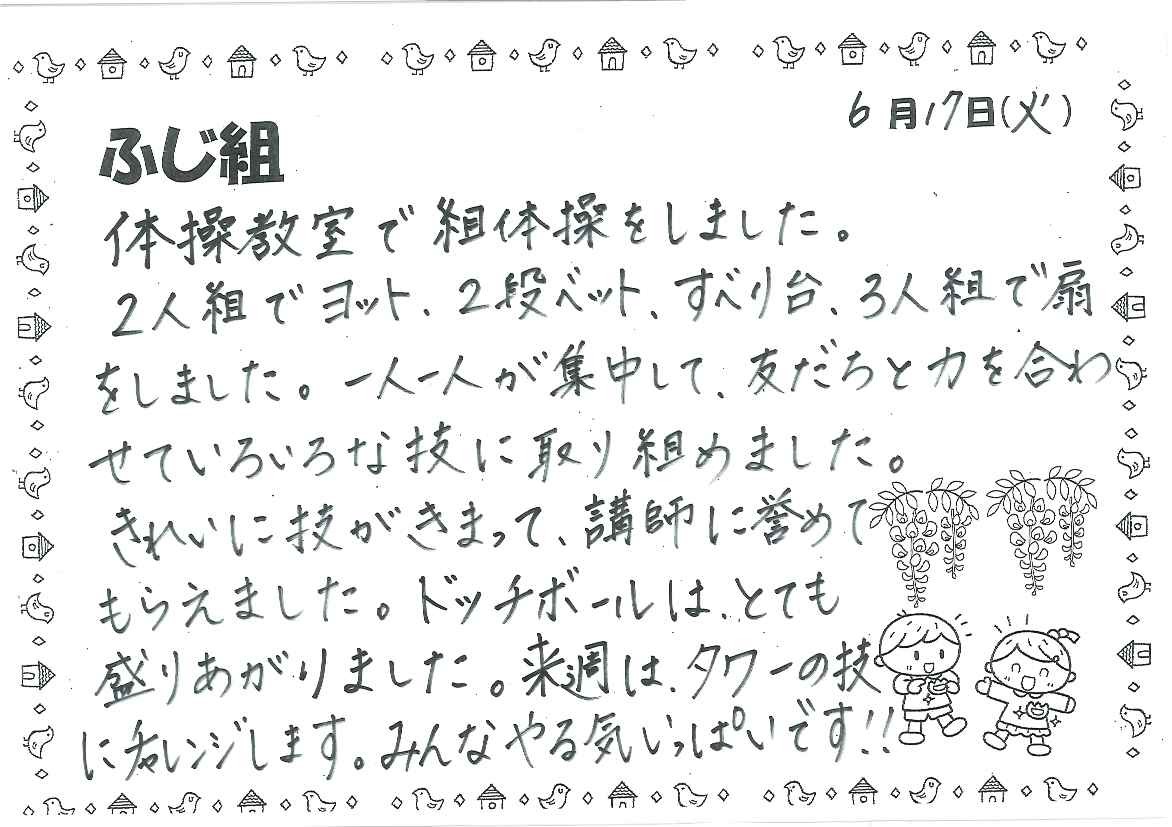 6月17日(火)
ふじ組
体操教室で組体操をしました。
2人組でヨット、2段ベット、すべり台、3人組で扇
をしました。一人一人が集中して、友だちと力を合わ
せていろいろな技に取り組めました。
きれいに技がきまって、講師に誉めて
もらえました。ドッチボールは、とても
盛りあがりました。来週は、タワーの技
にチャレンジします。みんなやる気いっぱいです!!